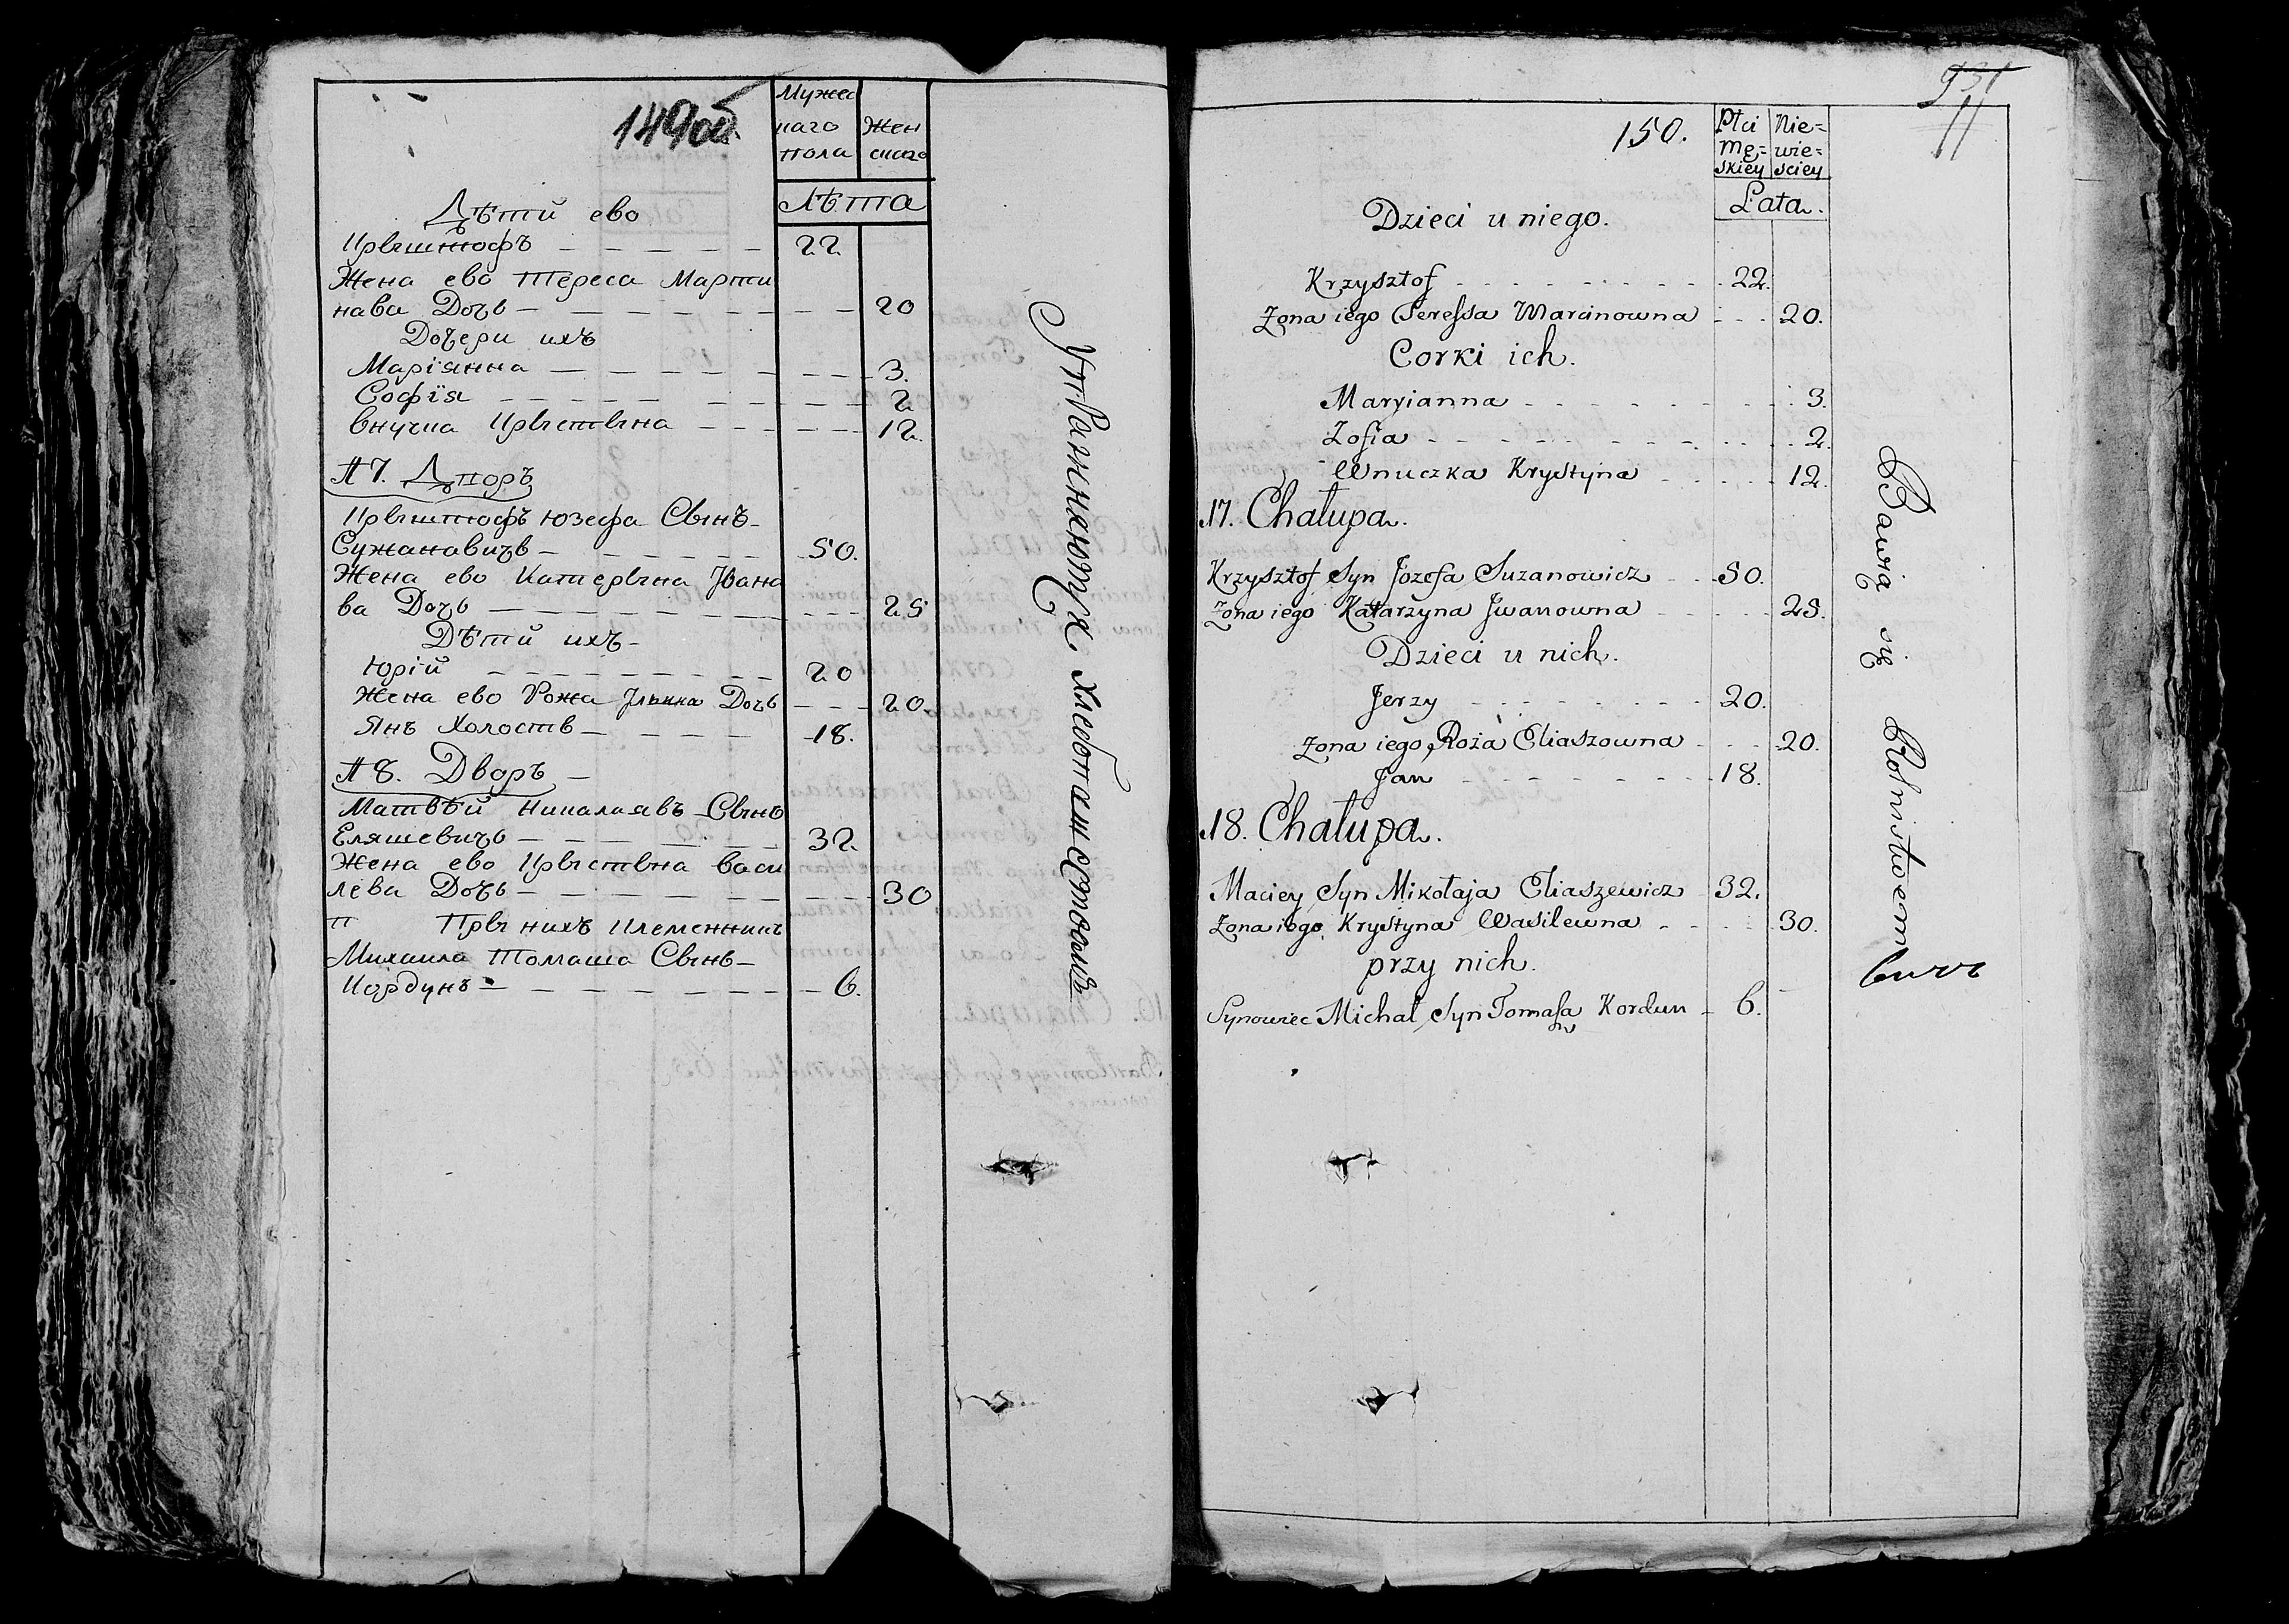 149об.
Мужес
каго
пола
Жен
скаго
Лѣта
Дѣти ево
Крыштофъ — — — — — 22.
Жена ево Тереса Марти
нава Дочь — — — — — 20
Дочери ихъ
Маріянна — — — — — 3.
Софія — — — — — 2
внучка Крыстына — — — — — 12.
17. Дворъ
Крыштофъ Юзефа Сынъ
Сужановичъ — — — — — 50.
Жена ево Катерына Јвана
ва Дочь — — — — — 25
Дѣти ихъ
Юрій — — — — — 20
Жена ево Рожа Дочь — — — 20.
Янъ Холостъ — — — — — 18.
18. Дворъ
Матвѣй Николаявъ Сынъ
Еляшевичъ — — — — — 32.
Жена ево Крыстына Васи
лева Дочь — — — — — 30
При нихъ племенникъ
Михаила Томаша Сынъ
Кордунъ — — — — — 6.
Упражняются хлебопашествомъ
931
11
150.
Płci
Mę=
skiey
Nie=
wie=
sciey
Lata.
Dzieci u niego.
Krzysztof - - - - - 22.
Zona iego Teressa Marcinowna - - - 20.
Corki ich.
Maryianna - - - - - 3.
Zofia - - - - - 2.
Wnuczka Krystyna - - - - - 12.
17. Chałupa.
Krzysztof Syn Jozefa Suzanowicz - - 50.
Zona iego Katarzyna Jwanowna - - - - 25.
Dzieci u nich.
Jerzy - - - - - 20.
Zona iego Roża Eliaszowna - - - 20.
Jan - - - - - 18.
18. Chałupa.
Maciey Syn Mikołaja Eliaszewicz - 32.
Zona iego Krystyna Wasilewna - - - - 30.
przy nich.
Synowiec Michał Syn Tomasza Kordun - 6.
Bawią się Rolnistwem